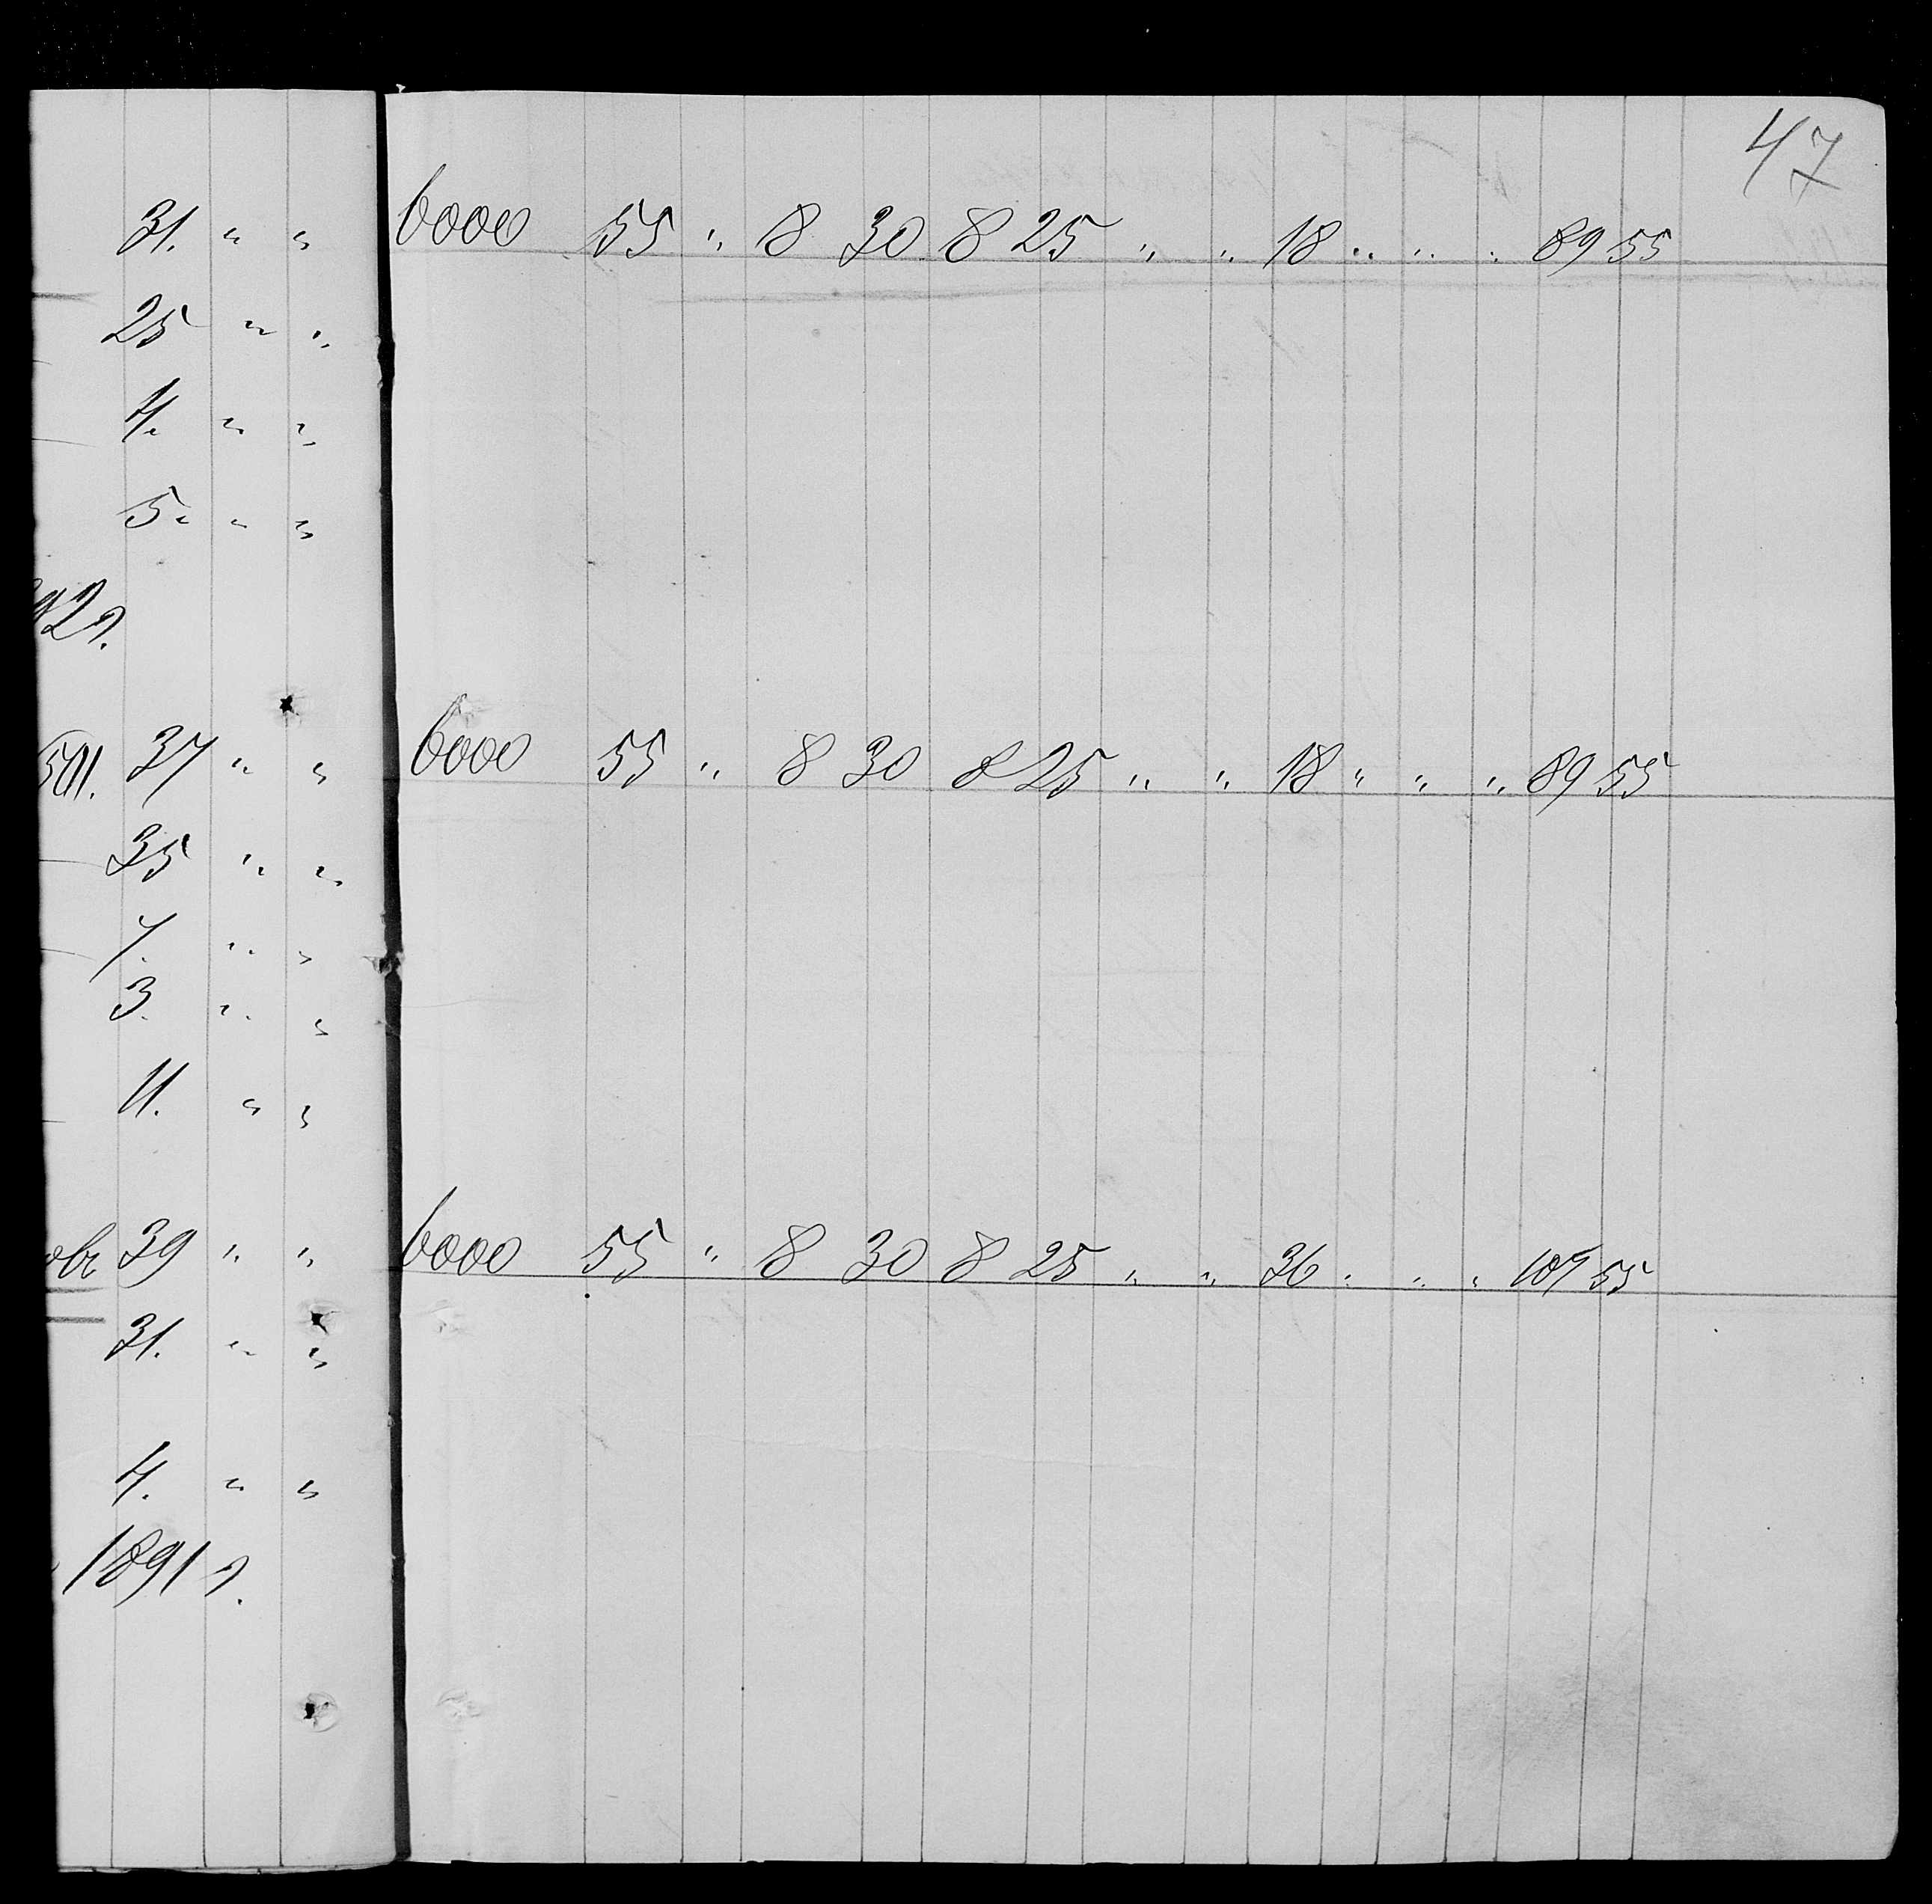 47
31. " " 6000 55 " 8 30 8 25 " " 18 " " " 89 55
25 " "
4. " "
5. " "
92 г.
37 " " 6000 55 " 8 30 8 25 " " 18 " " " 89 55
35 " "
7. " "
3. " "
11. " "
овъ 39 " " 6000 55 " 8 30 8 25 " " 36 " " " 107 55
31. " "
4. " "
1891 г.